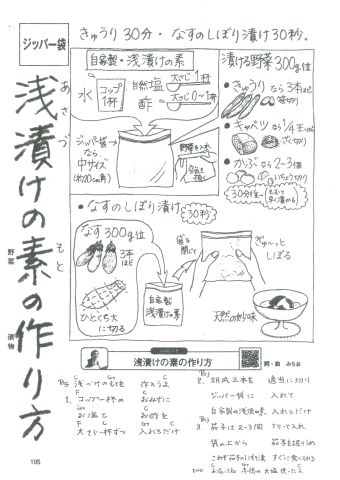 ジッパー袋
きゅうり30分・なすのしぼり漬け30秒。
浅漬けの素の作り方
あさづ
もと
野菜
漬物
自家製・浅漬けの素
水
コップ1杯
自然塩
大さじ1杯
酢
大さじ0〜1杯
ジッパー袋
なら
中サイズ
(約20cm角)
野菜を入れ
空気を
抜く
漬ける野菜300g位
●きゅうり なら3本ほど
●キャベツ なら1/4玉
ざく切り
●かぶ なら2〜3個
いちょう切り
30分位〜
もむと
早く漬かる
・なすのしぼり漬け
30秒
なす300g位
3本
ほど
ひとくち大
に切る
自家製
浅漬けの素
袋を
閉じて
ぎゅ〜っと
しぼる
天然の妙味
浅漬けの素の作り方
詞・曲 みちお
浅づけのもとを 作ろうよ
1. コップ一杯の おみずに
お塩と お酢を
大さじ一杯ずつ 入れるだけ
2. 胡瓜三本を 適当に切り
ジッパー袋に 入れて
自家製の浅漬の素 入れるだけ
3. 茄子は2〜3個 切って入れ
袋の上から 茄子を握りしめ
これぞ茄子のしぼり漬 すぐに食べられる
105